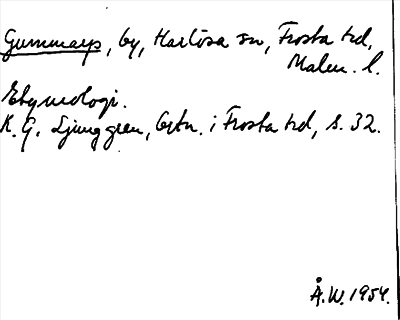 Gummarp, by, Harlösa sn, Frosta hd,
Malm. l.
Etymologi.
K. G. Ljunggren, Ortn. i Frosta hd, s. 32.
Å.W. 1954.